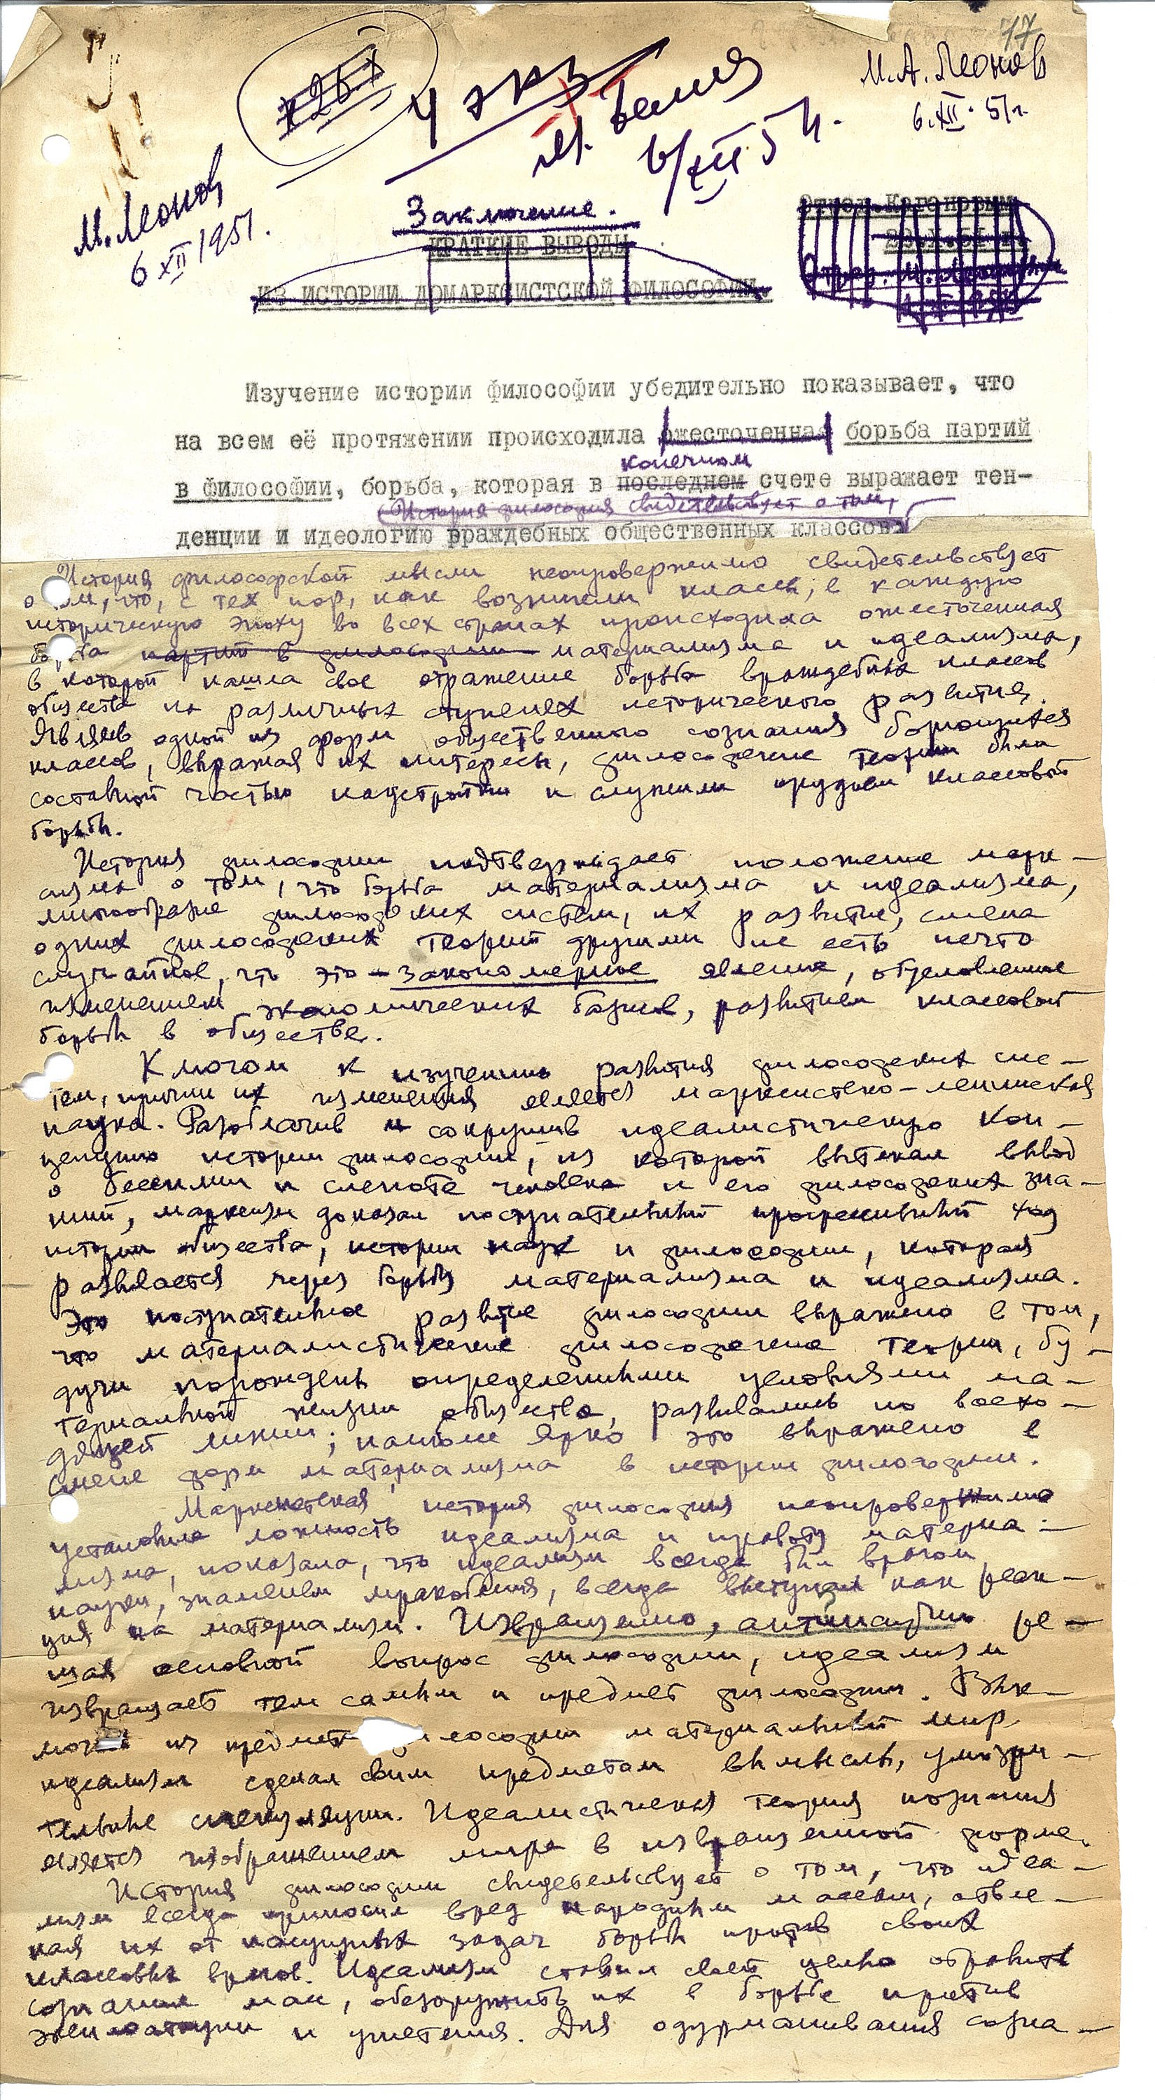 77
4 экз
М. А. Леонов
6.XII.51г.
6/XII 51г.
М. Леонов
6 XII 1951.
Заключение.
КРАТКИЕ ВЫВОДЫ
ИЗ ИСТОРИИ ДОМАРКСИСТСКОЙ ФИЛОСОФИИ.
Изучение истории философии убедительно показывает, что
на всем её протяжении происходила ожесточенная борьба партий
конечном
в философии, борьба, которая в последнем счете выражает тен-
История философии свидетельствует о том,
денции и идеологию враждебных общественных классов.
История философской мысли неопровержимо свидетельствует
о том, что, с тех пор, как возникли классы, в каждую
историческую эпоху во всех странах происходила ожесточенная
борьба партий в философии материализма и идеализма,
в которой нашла свое отражение борьба враждебных классов
общества на различных ступенях исторического развития.
Являясь одной из форм общественного сознания борющихся
классов, выражая их интересы, философские теории были
составной частью надстройки и служили орудием классовой
борьбы.
История философии подтверждает положение марк-
сизма о том, что борьба материализма и идеализма,
многообразие философских систем, их развитие, смена
одних философских теорий другими не есть нечто
случайное, что это – закономерное явление, обусловленное
изменением экономических базисов, развитием классовой
борьбы в обществе.
Ключом к изучению развития философских сис-
тем, причин их изменения является марксистско-ленинская
наука. Разоблачив и сокрушив идеалистическую кон-
цепцию истории философии, из которой вытекал вывод
о бессилии и слепоте человека и его философских зна-
ний, марксизм доказал поступательный прогрессивный ход
истории общества, истории наук и философии, которая
развивается через борьбу материализма и идеализма.
Это поступательное развитие философии выражено в том,
что материалистические философские теории, бу-
дучи порождены определенными условиями ма-
териальной жизни общества, развивались по восхо-
дящей линии; наиболее ярко это выражено в
смене форм материализма в истории философии.
Марксистская история философии неопровержимо
установила ложность идеализма и правоту материа-
лизма, показала, что идеализм всегда был врагом
науки, знаменем мракобесия, всегда выступал как реак-
ция на материализм. Извращенно, антинаучно ре-
шая основной вопрос философии, идеализм
извращает тем самым и предмет философии. Вык-
из предмета философии материальный мир
идеализм сделал своим предметом вымыслы, умозри-
тельные спекуляции. Идеалистическая теория познания
является изображением мира в извращенной форме.
История философии свидетельствует о том, что идеа-
лизм всегда приносил вред народным массам, отвле-
кая их от насущных задач борьбы против своих
классовых врагов. Идеализм ставил своей целью
сознание масс, обезоружить их в борьбе против
эксплоатации и угнетения. Для одурманивания созна-